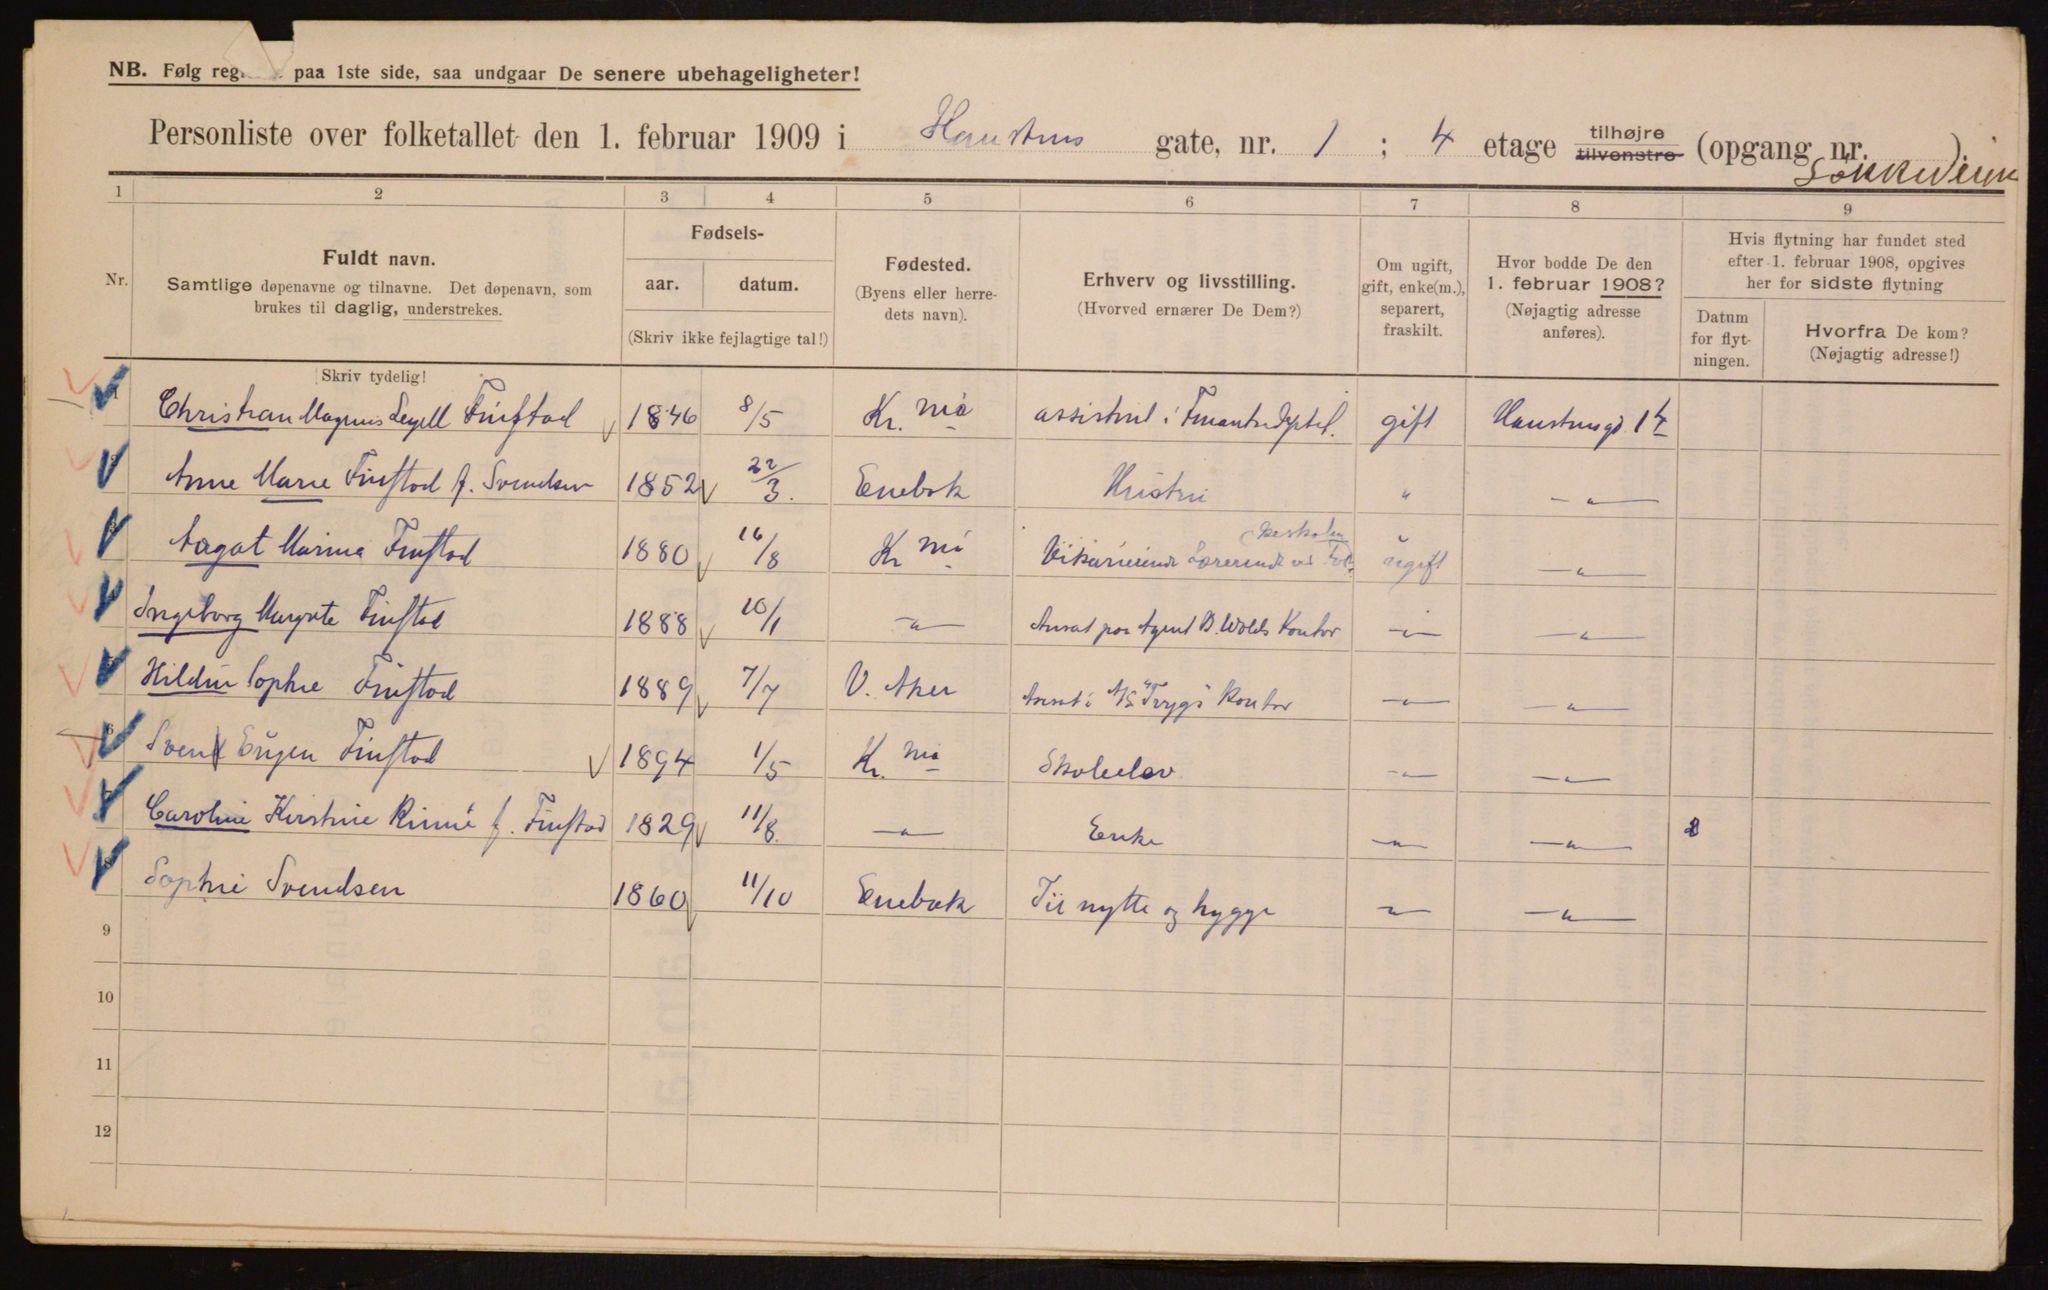 NB. Følg paa 1ste side, saa undgaar De senere ubehageligheter!
Personliste over folketallet den 1. februar 1909 i Hausmanns gate, nr. 1 ; 4 etage tilhøjre tilvenstre (opgang nr. ).
1 2 3 4 5 6 7 8 9
Nr.
Fuldt navn.
Samtlige døpenavne og tilnavne. Det døpenavn, som
brukes til daglig, understrekes.
Skriv tydelig!
Fødsels-
aar. datum.
(Skriv ikke fejlagtige tal!)
Fødested.
(Byens eller herre-
dets navn).
Erhverv og livsstilling.
(Hvorved ernærer De Dem?)
Om ugift,
gift, enke(m.),
separert,
fraskilt.
Hvor bodde De den
1. februar 1908?
(Nøjagtig adresse
anføres).
Hvis flytning har fundet sted
efter 1. februar 1908, opgives
her for sidste flytning
Datum
for flyt-
ningen.
Hvorfra De kom?
(Nøjagtig adresse!)
Christian Magnus Finstad 1846 8/5 Kr. nia assistent i gift 1 4
Anne Marie Finstad f. Svendsen 1852 22/3. Enebak Hustru " —"—
Aagot Marina Finstad 1880 16/8 Kr nia Vikarierende Lærerinde ved Folkeskolen ugift —"—
Ingeborg Margrete Finstad 1888 10/1 —"— Ansat paa Agent B. Wolds Kontor —"— —"—
Sophie Finstad 1889 7/7 V. Aker Ansat i A/S "Tryg"s Kontor —"— —"—
Svend Eugen Finstad 1894 1/5 Kr. nia Skoleelev —"— —"—
Caroline Kirstine f. Finstad 1829 11/8. —"— Enke —"— —"—
Sophie Svendsen 1860 11/10 Enebak Til nytte og hygge —"— —"—
9
10
11
12